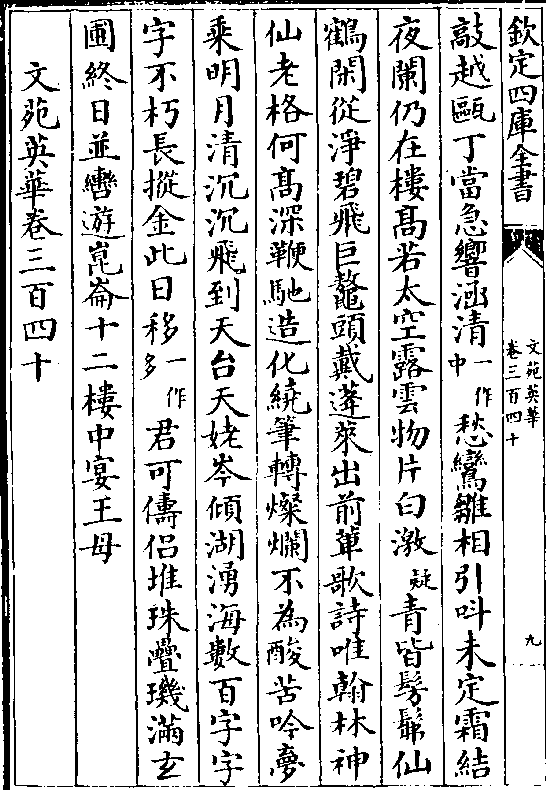 欽定四庫全書
文苑英華
卷三百四十
九
敲越甌丁當急響涵清一作中愁鸞雛相引呌未定霜結
夜闌仍在樓髙若太空露雲物片白激疑青皆髣髴仙
鶴閑從淨碧飛巨鼇頭戴蓬萊出前輩歌詩唯翰林神
仙老格何髙深鞭馳造化繞筆轉燦爛不為酸苦吟夢
乘明月清沉沉飛到天台天姥岑傾湖湧海數百字字
字不朽長摐金此日移一作多君可儔侣堆珠疊璣滿玄
圃終日並轡遊崑崙十二樓中宴王母
文苑英華卷三百四十